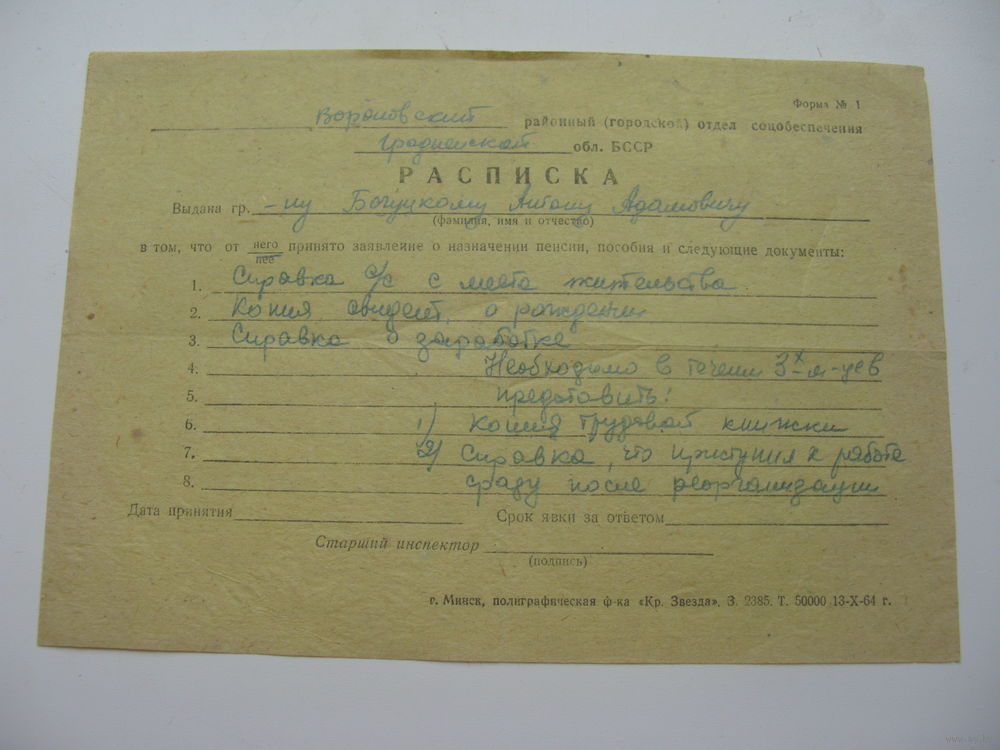 Форма № 1
Вороновский районный (городской) отдел соцобеспечения
Гродненской обл. БССР
РАСПИСКА
Выдана гр. -ну Богуцкому Антону Адамовичу
(фамилия, имя и отчество)
в том, что от него
нее принято заявление о назначении пенсии, пособия и следующие документы:
1. Справка с/с с места жительства
2. Копия свидет. о рождении
3. Справка о заработке
4. Необходимо в течении 3х м-цев
5. представить:
6. 1) копия трудовой книжки
7. 2) Справка, что приступил к работе
8. сразу после реорганизации
Дата принятия Срок явки за ответом
Старший инспектор
(подпись)
г. Минск, полиграфическая ф-ка «Кр. Звезда», З. 2385. Т. 50000 13-X-64 г.